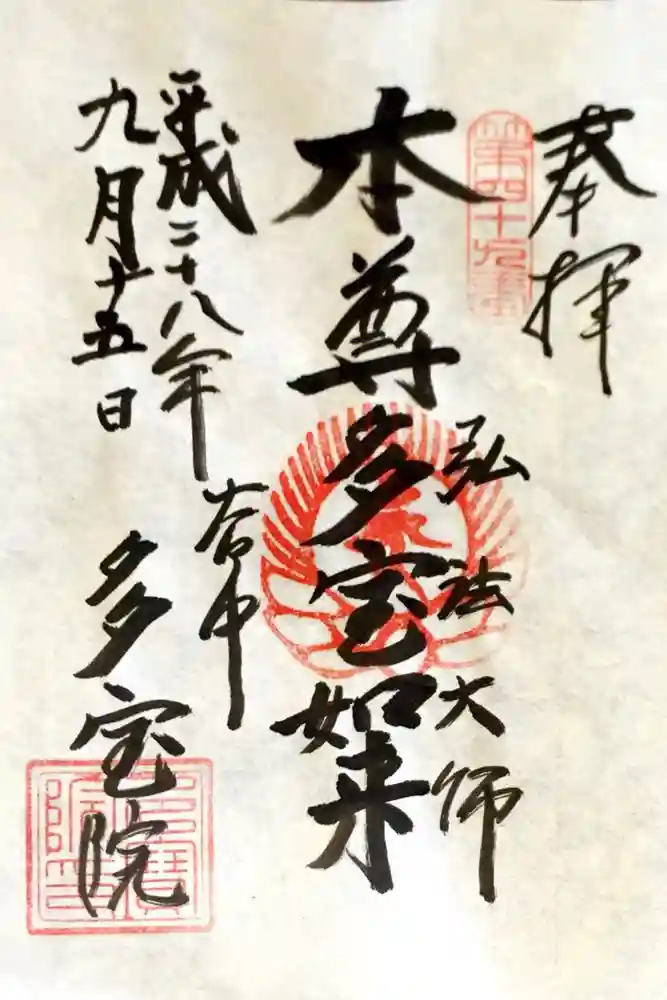 奉拝
第四十九番
弘法大師
本尊多宝如来
平成二十八年
九月十五日
谷中
多宝院
多寶院印